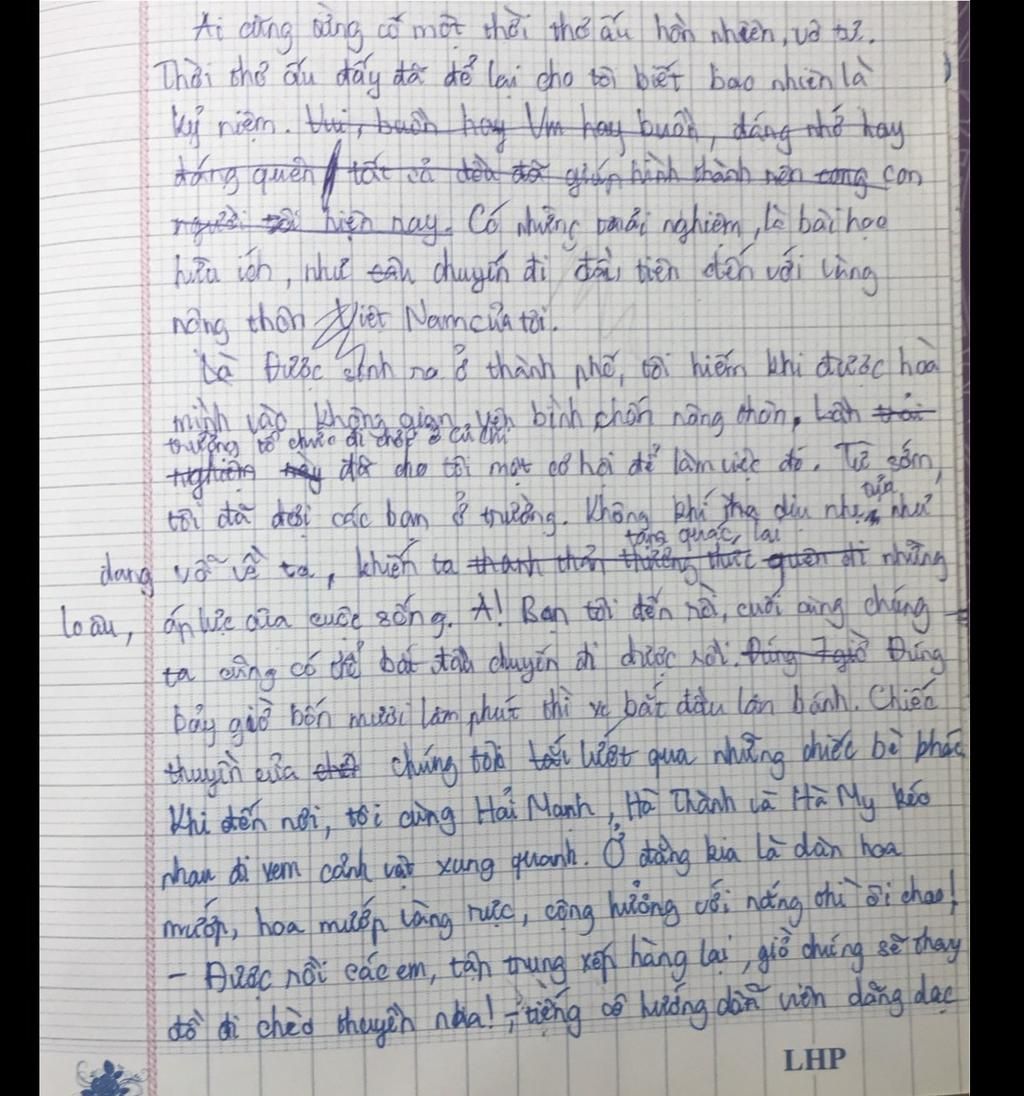 Ai cũng từng có một thời thơ ấu hồn nhiên, vô tư.
Thời thơ ấu đấy đã để lại cho tôi biết bao nhiên là
kỷ niệm. Vui, buồn hay Vui hay buồn, đáng nhớ hay
đáng quên, tất cả đều đã giúp hình thành nên con
người tôi hiện nay. Có những trải nghiệm, là bài học
hữu ích, như chuyến đi đầu tiên đến với vùng
nông thôn Việt Nam của tôi.
Là Được sinh ra ở thành phố, tôi hiếm khi được hoà
mình vào không gian yên bình chốn nông thôn. Lần trải
trường tổ chức đi ở Củ Chi
nghiệm này đã cho tôi một cơ hội để làm việc đó. Từ sớm,
tôi đã đợi các bạn ở trường. Không khí dịu nhẹ tựa như
đang vỗ về ta, khiến ta thanh thản thưởng thức quên đi những
lo âu, áp lực của cuộc sống. A! Bạn tôi đến rồi, cuối cùng chúng
ta cũng có thể bắt đầu chuyến đi được rồi. Đúng 7 giờ Đúng
bảy giờ bốn mươi lăm phút thì xe bắt đầu lăn bánh. Chiếc
thuyền của chúng tôi lướt qua những chiếc bè khác
Khi đến nơi, tôi cùng Hải Mạnh, Hà Thành và Hà My kéo
nhau đi xem cảnh vật xung quanh. Ở đằng kia là dàn hoa
mướp, hoa mướp vàng rực, cộng hưởng với nắng thì ôi chao!
- Được rồi các em, tập trung xếp hàng lại, giờ chúng sẽ thay
đồ đi chèo thuyền nữa! - tiếng cô hướng dẫn viên dõng dạc
LHP